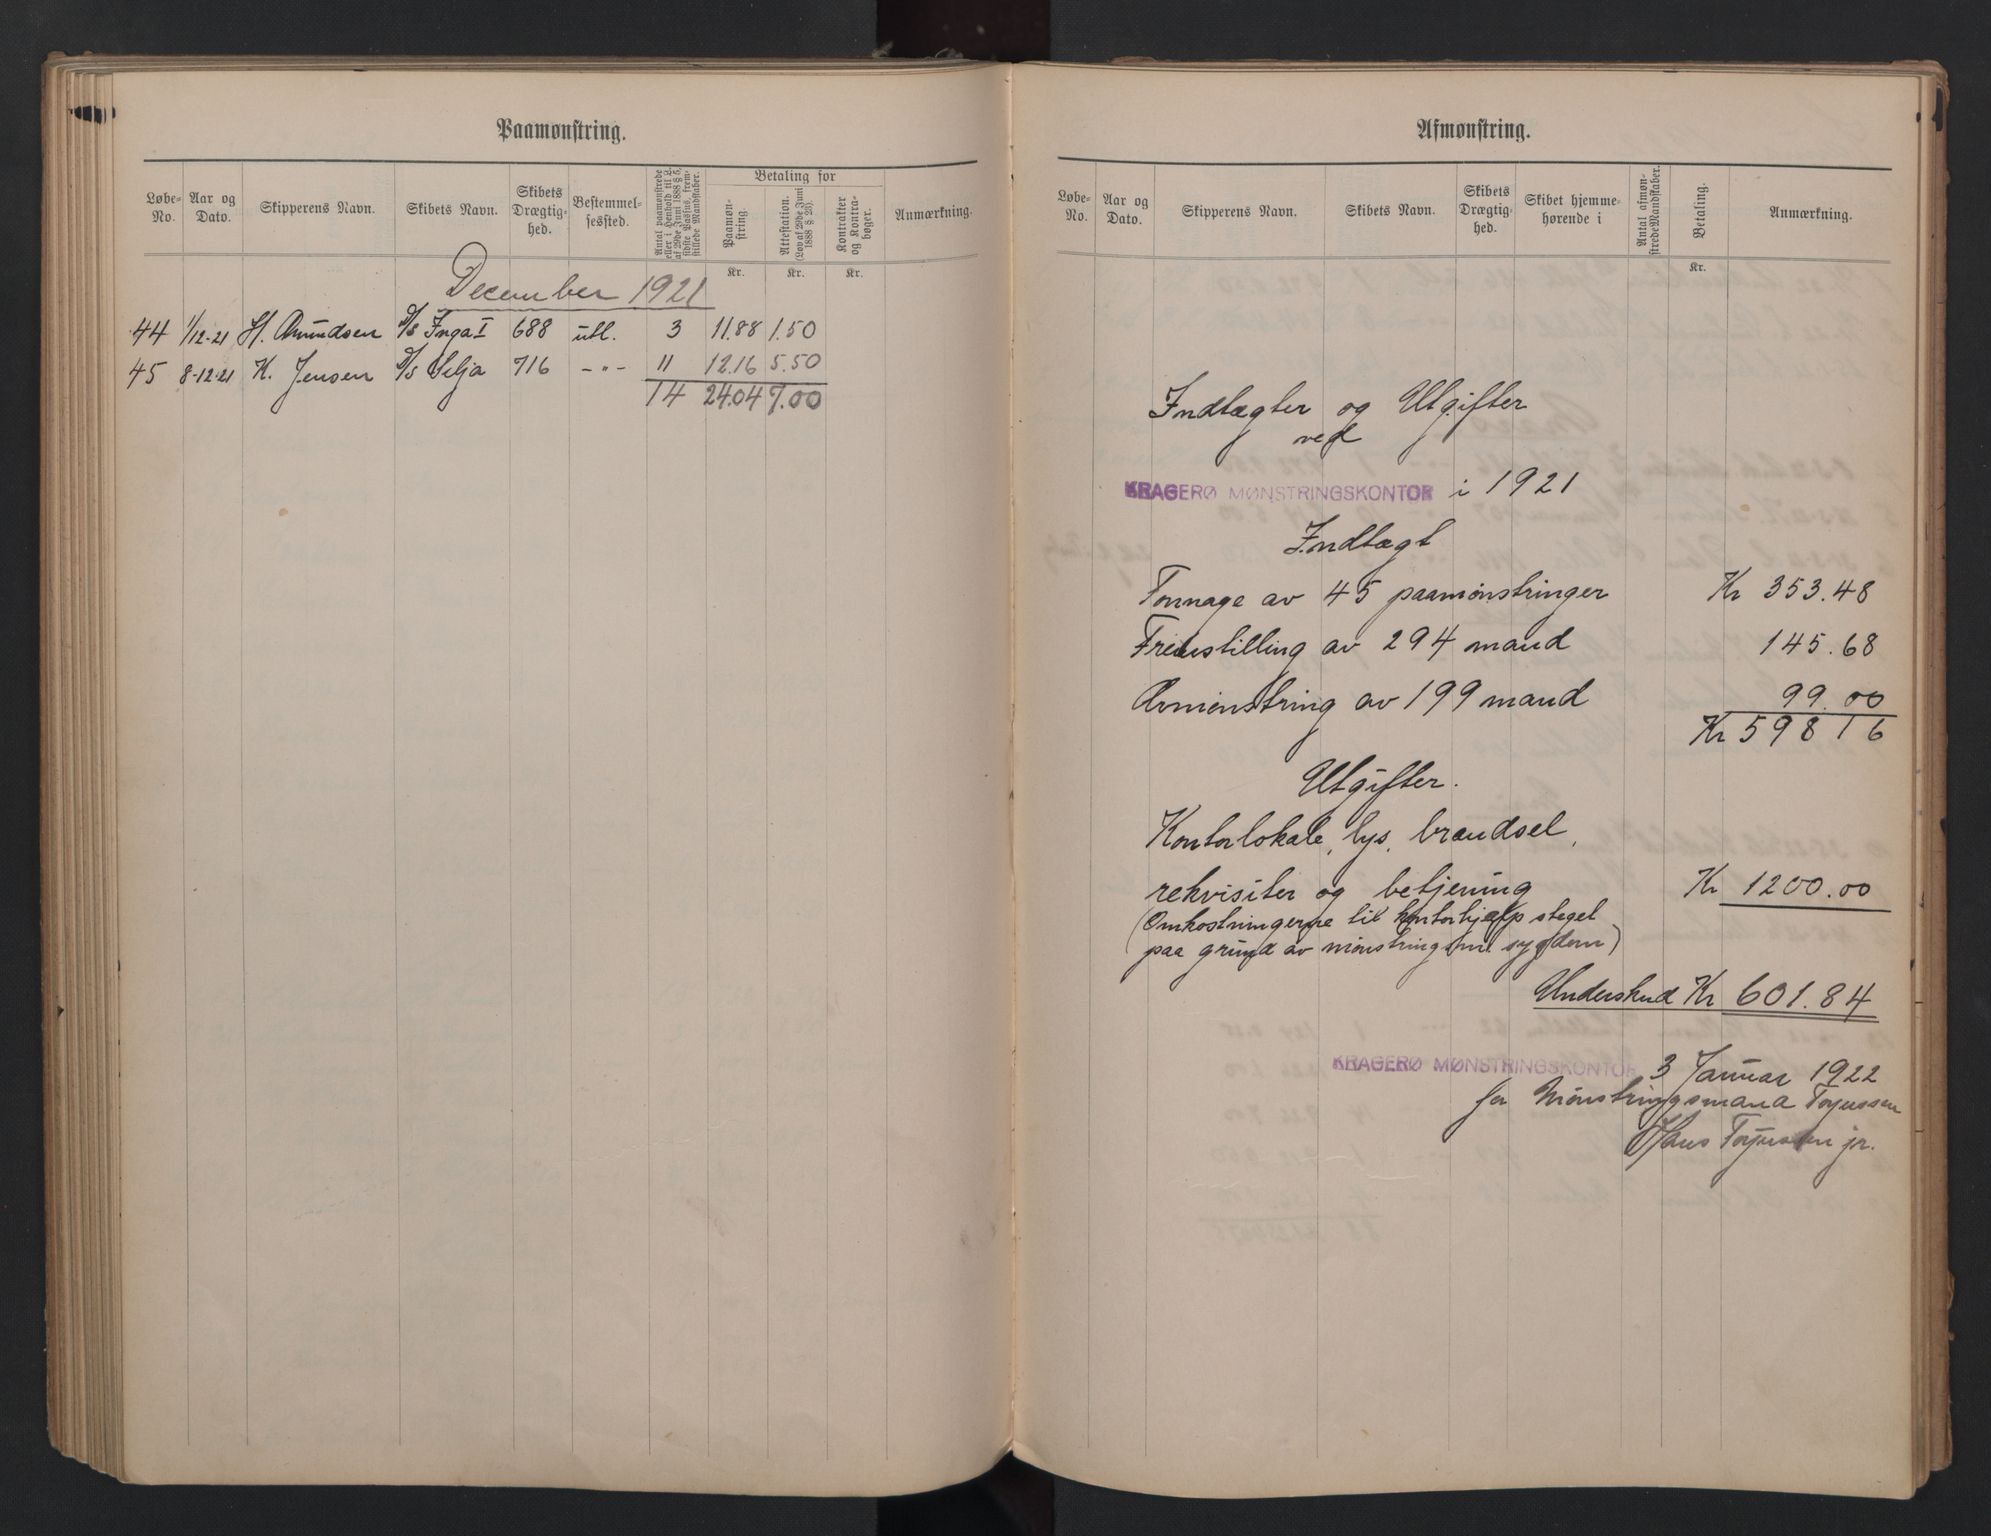 Paamønstring.
Løbe-No. Aar og Dato. Skipperens Navn. Skibets Navn. Skibets Drægtighed. Bestemmelsessted. Antal paamønstrede eller i Henhold til L. af 29de Juni 1888 § 5, sidste Passus, fremstillede Mandskaber. Betaling for Paamønstring. Attestation. (Lov af 29de Juni 1888 § 23). Kontrakter og Kontrabøger. Anmærkning.
Kr. Kr. Kr.
December 1921
44 1/12-21 H. Amundsen D/S Inga I 688 utl. 3 11.88 1.50
45 8-12-21 K. Jensen D/S Selja 716 -"- 11 12.16 5.50
14 24.04 7.00
Afmønstring.
Løbe-No. Aar og Dato. Skipperens Navn. Skibets Navn. Skibets Drægtighed. Skibet hjemmehørende i Antal afmønstrede Mandskaber. Betaling. Anmærkning.
Kr.
Indtægter og Utgifter
ved
KRAGERØ MØNSTRINGSKONTOR i 1921
Indtægt
Tonnage av 45 paamønstringer Kr 353.48
Fremstilling av 294 mand 145.68
Avmønstring av 199 mand 99.00
Kr 598 16
Utgifter.
Kontorlokale, lys, brændsel,
rekvisiter og betjening Kr 1200.00
(Omkostningerne til kontorhjælp steget
paa grund av mønstringsm. sygdom)
Underskud Kr 601.84
KRAGERØ MØNSTRINGSKONTOR 3 Januar 1922
for Mønstringsmand Torjussen
Hans Torjussen jr.